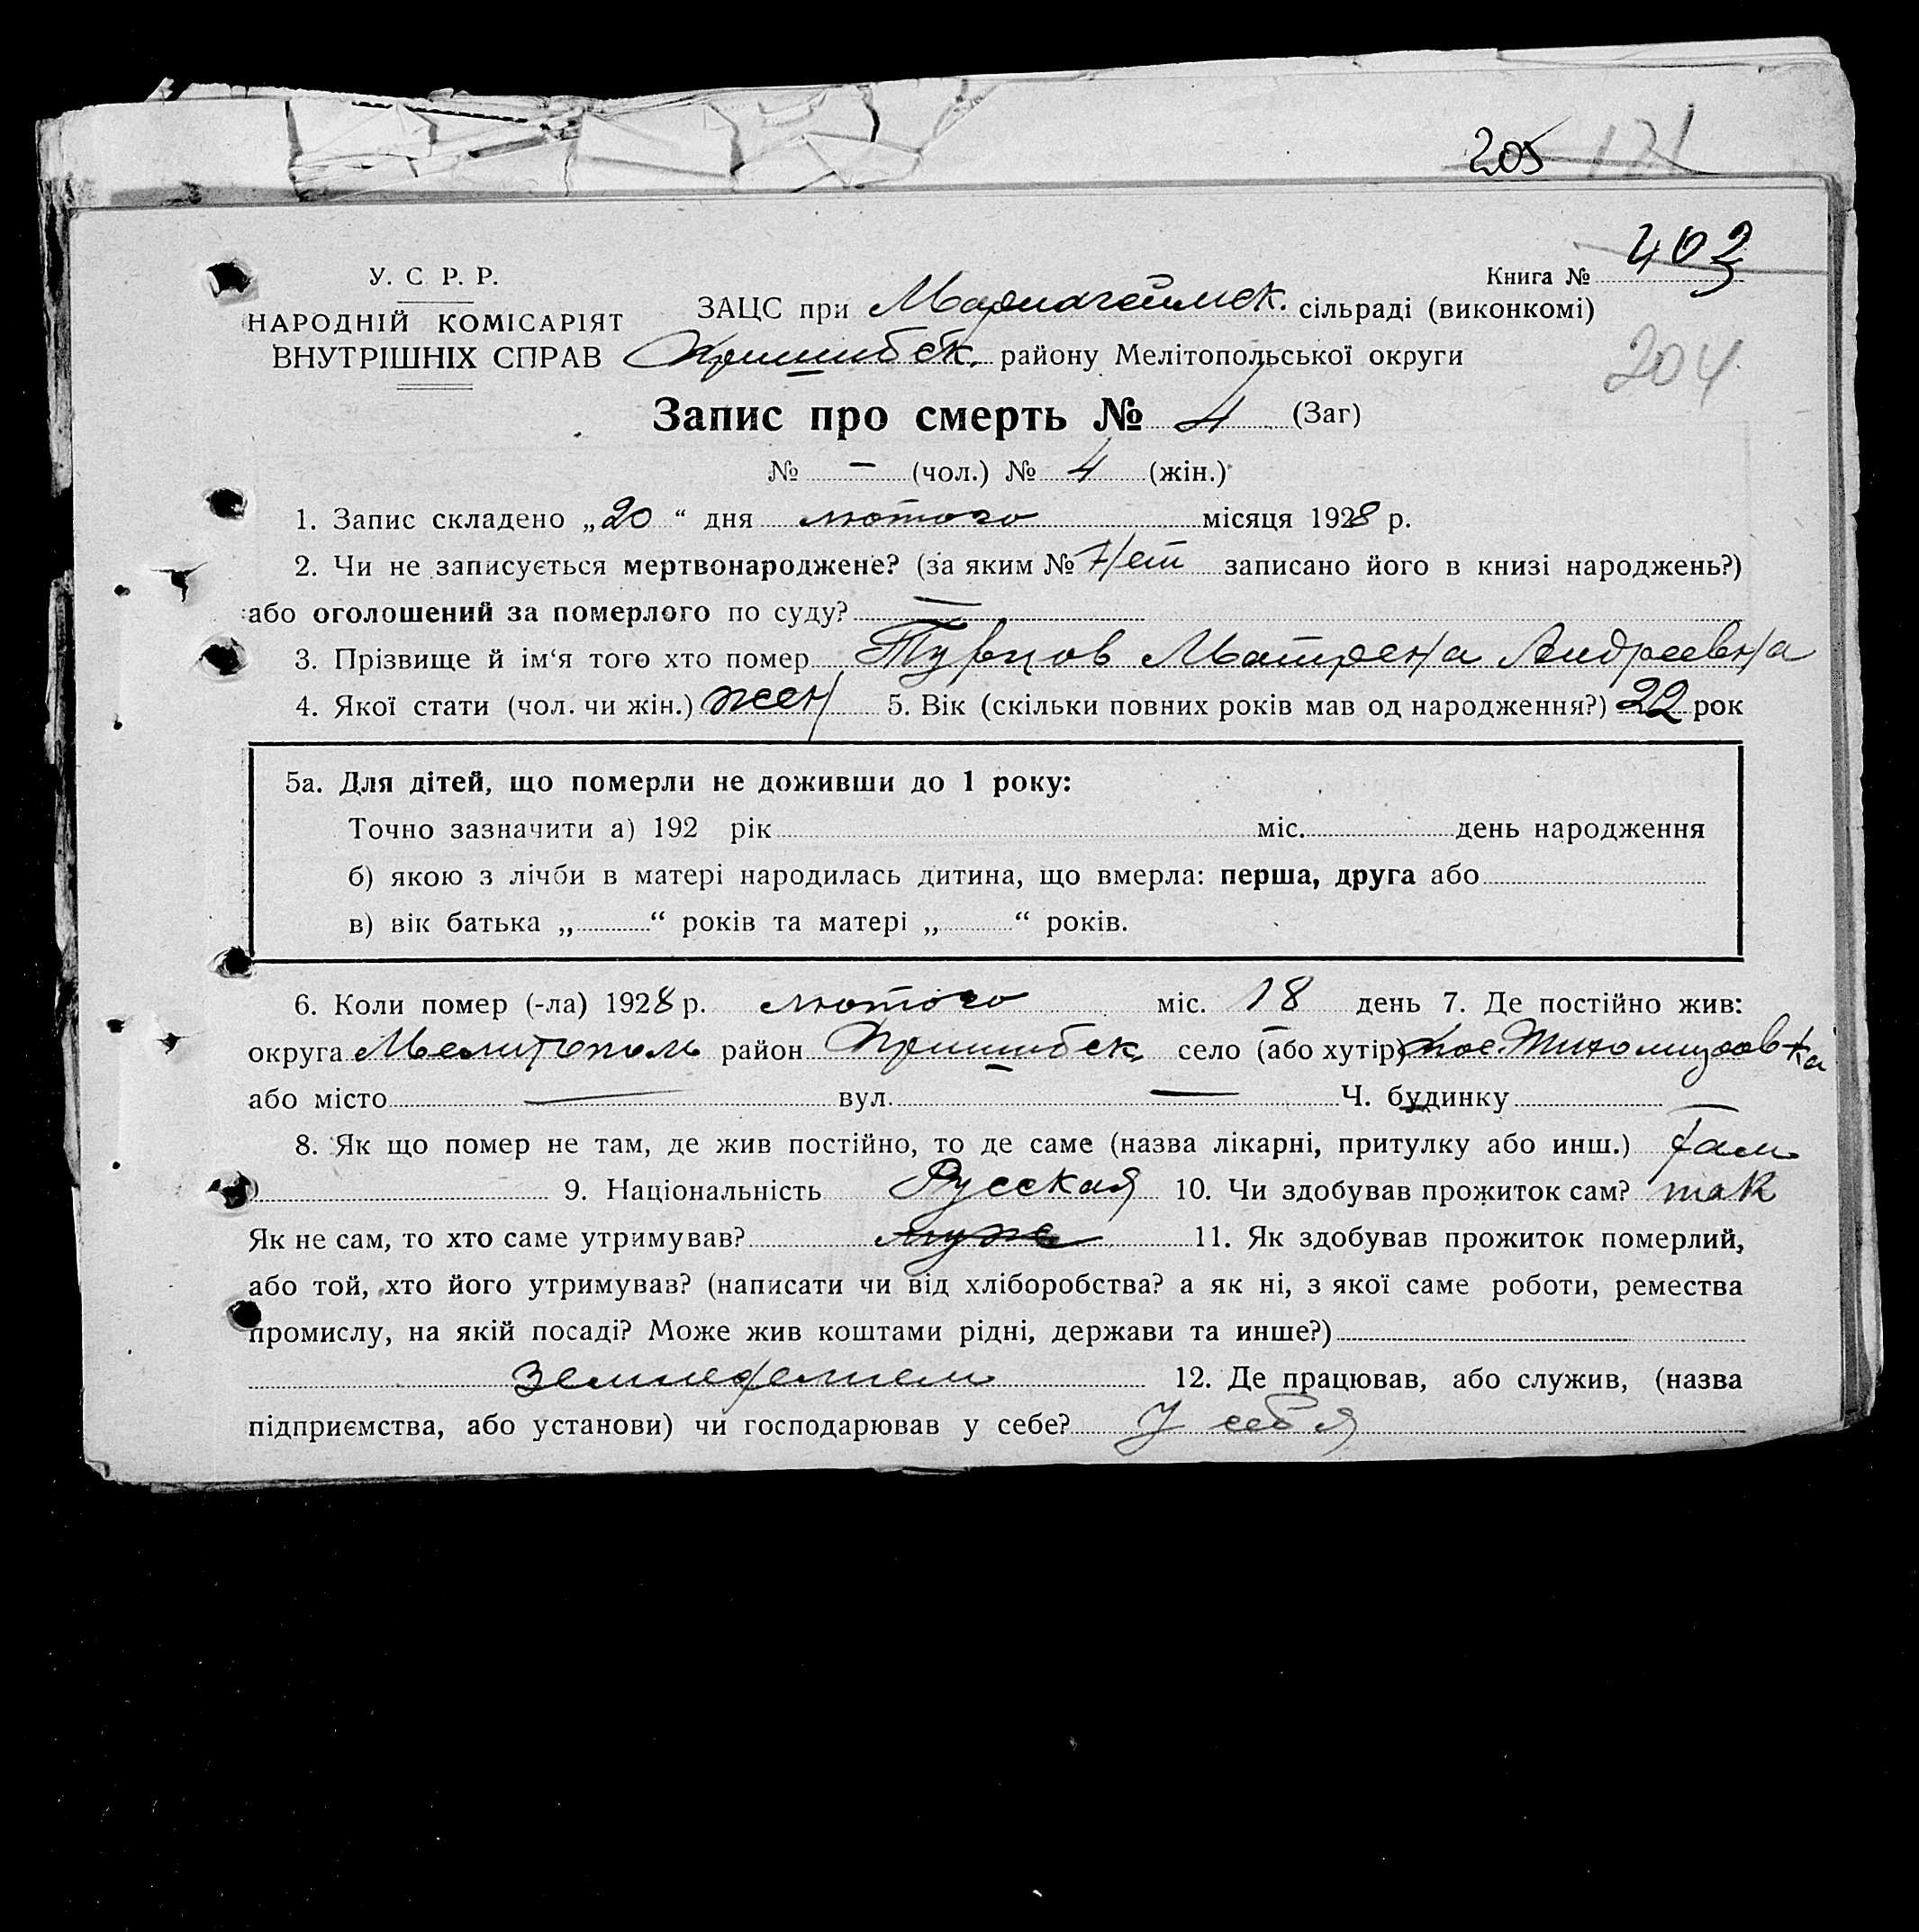 205 171
Книга № 403
У. С Р. Р.
НАРОДНІЙ КОМІСАРІЯТ
ВНУТРІШНІХ СПРАВ
ЗАЦС при Мариагеймск. сільраді (виконкомі)
Пришибск. району Мелітопольської округи
204
Запис про смерть № 4 (Заг)
№ — (чол.) № 4 (жін.)
1. Запис складено „20“ дня лютого місяця 1928 р.
2. Чи не записується мертвонароджене? (за яким № Нет записано його в книзі народжень?)
або оголошений за померлого по суду? —
3. Прізвище й ім‘я того хто помер Турцов Матрена Андреевна
4. Якої стати (чол. чи жін.) жен 5. Вік (скільки повних років мав од народження?) 22 рок
5а. Для дітей, що померли не доживши до 1 року:
Точно зазначити а) 192 рік міс. день народження
б) якою з лічби в матері народилась дитина, що вмерла: перша, друга або
в) вік батька „ “ років та матері „ “ років.
6. Коли помер (-ла) 1928 р. лютого міс. 18 день 7. Де постійно жив:
округа Мелитополь район Пришибск. село (або хутір) пос. Тихомировка
або місто — вул. — Ч. будинку —
8. Як що помер не там, де жив постійно, то де саме (назва лікарні, притулку або инш.) там
9. Національність Русская 10. Чи здобував прожиток сам? так
Як не сам, то хто саме утримував? муж 11. Як здобував прожиток померлий,
або той, хто його утримував? (написати чи від хліборобства? а як ні, з якої саме роботи, ремества
промислу, на якій посаді? Може жив коштами рідні, держави та инше?)
земледелием 12. Де працював, або служив, (назва
підприємства, або установи) чи господарював у себе? У себя